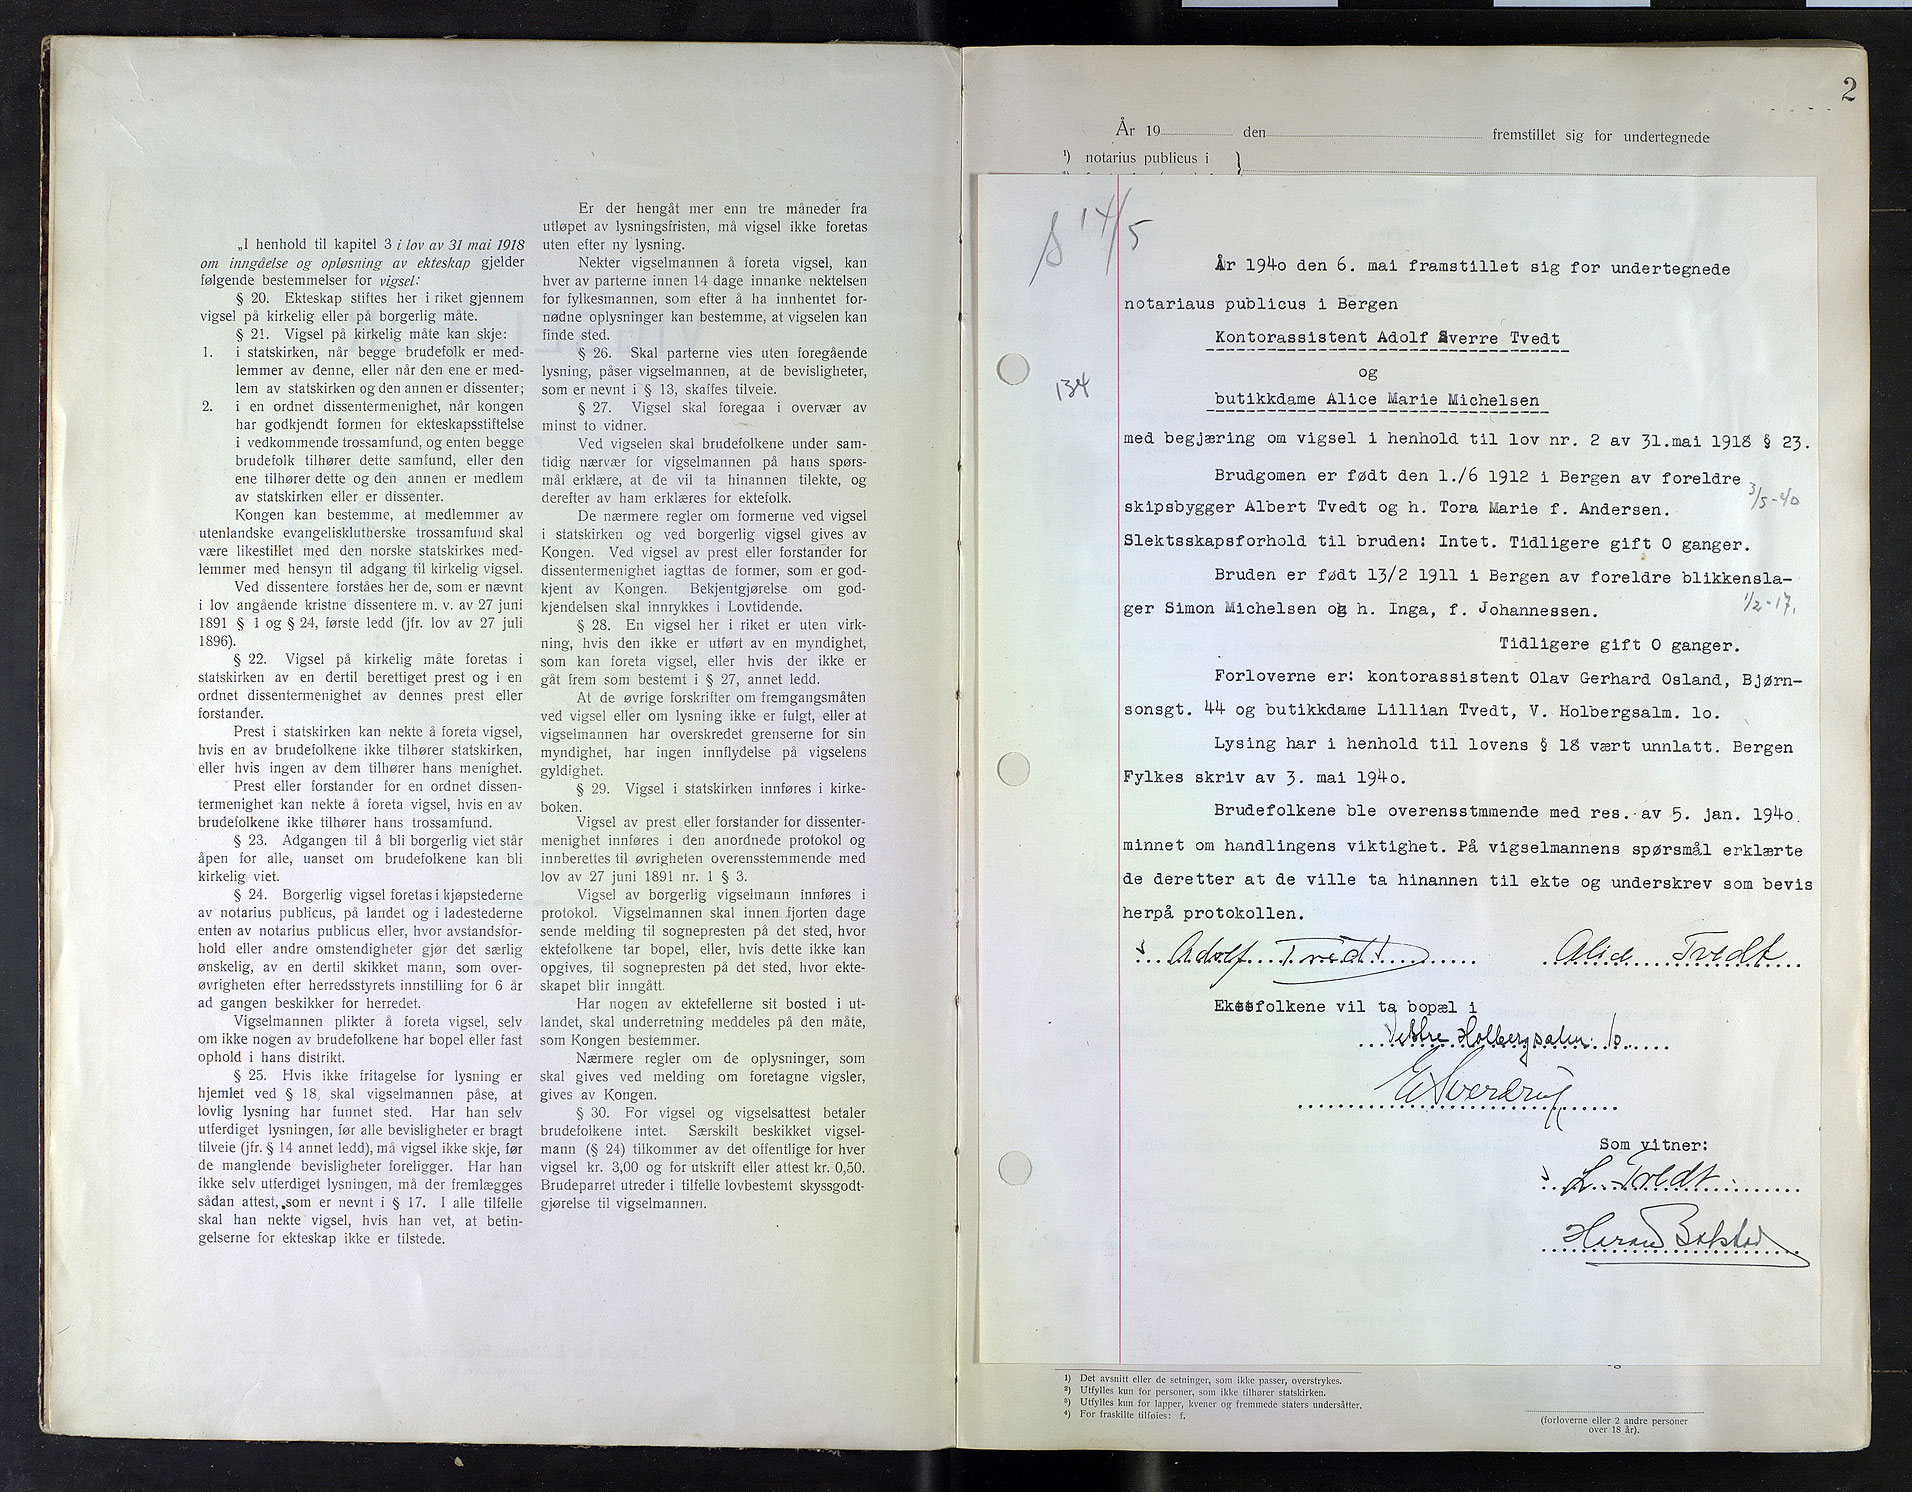 „I henhold til kapitel 3 i lov av 31 mai 1918
om inngåelse og opløsning av ekteskap gjelder
følgende bestemmelser for vigsel:
§ 20. Ekteskap stiftes her i riket gjennem
vigsel på kirkelig eller på borgerlig måte.
§ 21. Vigsel på kirkelig måte kan skje:
1. i statskirken, når begge brudefolk er med-
lemmer av denne, eller når den ene er med-
lem av statskirken og den annen er dissenter;
2. i en ordnet dissentermenighet, når kongen
har godkjendt formen for ekteskapsstiftelse
i vedkommende trossamfund, og enten begge
brudefolk tilhører dette samfund, eller den
ene tilhører dette og den annen er medlem
av statskirken eller er dissenter.
Kongen kan bestemme, at medlemmer av
utenlandske evangelisklutherske trossamfund skal
være likestillet med den norske statskirkes med-
lemmer med hensyn til adgang til kirkelig vigsel.
Ved dissentere forståes her de, som er nævnt
i lov angående kristne dissentere m. v. av 27 juni
1891 § 1 og § 24, første ledd (jfr. lov av 27 juli
1896).
§ 22. Vigsel på kirkelig måte foretas i
statskirken av en dertil berettiget prest og i en
ordnet dissentermenighet av dennes prest eller
forstander.
Prest i statskirken kan nekte å foreta vigsel,
hvis en av brudefolkene ikke tilhører statskirken,
eller hvis ingen av dem tilhører hans menighet.
Prest eller forstander for en ordnet dissen-
termenighet kan nekte å foreta vigsel, hvis en av
brudefolkene ikke tilhører hans trossamfund.
§ 23. Adgangen til å bli borgerlig viet står
åpen for alle, uanset om brudefolkene kan bli
kirkelig viet.
§ 24. Borgerlig vigsel foretas i kjøpstederne
av notarius publicus, på landet og i ladestederne
enten av notarius publicus eller, hvor avstandsfor-
hold eller andre omstendigheter gjør det særlig
ønskelig, av en dertil skikket mann, som over-
øvrigheten efter herredsstyrets innstilling for 6 år
ad gangen beskikker for herredet.
Vigselmannen plikter å foreta vigsel, selv
om ikke nogen av brudefolkene har bopel eller fast
ophold i hans distrikt.
§ 25. Hvis ikke fritagelse for lysning er
hjemlet ved § 18, skal vigselmannen påse, at
lovlig lysning har funnet sted. Har han selv
utferdiget lysningen, før alle bevisligheter er bragt
tilveie (jfr. § 14 annet ledd), må vigsel ikke skje, før
de manglende bevisligheter foreligger. Har han
ikke selv utferdiget lysningen, må der fremlægges
sådan attest, som er nevnt i § 17. I alle tilfelle
skal han nekte vigsel, hvis han vet, at betin-
gelserne for ekteskap ikke er tilstede.
Er der hengåt mer enn tre måneder fra
utløpet av lysningsfristen, må vigsel ikke foretas
uten efter ny lysning.
Nekter vigselmannen å foreta vigsel, kan
hver av parterne innen 14 dage innanke nektelsen
for fylkesmannen, som efter å ha innhentet for-
nødne oplysninger kan bestemme, at vigselen kan
finde sted.
§ 26. Skal parterne vies uten foregående
lysning, påser vigselmannen, at de bevisligheter,
som er nevnt i § 13, skaffes tilveie.
§ 27. Vigsel skal foregaa i overvær av
minst to vidner.
Ved vigselen skal brudefolkene under sam-
tidig nærvær for vigselmannen på hans spørs-
mål erklære, at de vil ta hinannen tilekte, og
derefter av ham erklæres for ektefolk.
De nærmere regler om formerne ved vigsel
i statskirken og ved borgerlig vigsel gives av
Kongen. Ved vigsel av prest eller forstander for
dissentermenighet iagttas de former, som er god-
kjent av Kongen. Bekjentgjørelse om god-
kjendelsen skal innrykkes i Lovtidende.
§ 28. En vigsel her i riket er uten virk-
ning, hvis den ikke er utført av en myndighet,
som kan foreta vigsel, eller hvis der ikke er
gåt frem som bestemt i § 27, annet ledd.
At de øvrige forskrifter om fremgangsmåten
ved vigsel eller om lysning ikke er fulgt, eller at
vigselmannen har overskredet grenserne for sin
myndighet, har ingen innflydelse på vigselens
gyldighet.
§ 29. Vigsel i statskirken innføres i kirke-
boken.
Vigsel av prest eller forstander for dissenter-
menighet innføres i den anordnede protokol og
innberettes til øvrigheten overensstemmende med
lov av 27 juni 1891 nr. 1 § 3.
Vigsel av borgerlig vigselmann innføres i
protokol. Vigselmannen skal innen fjorten dage
sende melding til sognepresten på det sted, hvor
ektefolkene tar bopel, eller, hvis dette ikke kan
opgives, til sognepresten på det sted, hvor ekte-
skapet blir inngått.
Har nogen av ektefellerne sit bosted i ut-
landet, skal underretning meddeles på den måte,
som Kongen bestemmer.
Nærmere regler om de oplysninger, som
skal gives ved melding om foretagne vigsler,
gives av Kongen.
§ 30. For vigsel og vigselsattest betaler
brudefolkene intet. Særskilt beskikket vigsel-
mann (§ 24) tilkommer av det offentlige for hver
vigsel kr. 3,00 og for utskrift eller attest kr. 0,50.
Brudeparret utreder i tilfelle lovbestemt skyssgodt-
gjørelse til vigselmannen.
2
År 19 den fremstillet sig for undertegnede
¹) notarius publicus i }
14/5
År 1940 den 6. mai framstillet sig for undertegnede
notariaus publicus i Bergen
Kontorassistent Adolf Sverre Tvedt
og
134
butikkdame Alice Marie Michelsen
med begjæring om vigsel i henhold til lov nr. 2 av 31.mai 1918 § 23.
Brudgomen er født den 1./6 1912 i Bergen av foreldre
3/5-40
skipsbygger Albert Tvedt og h. Tora Marie f. Andersen.
Slektsskapsforhold til bruden: Intet. Tidligere gift 0 ganger.
Bruden er født 13/2 1911 i Bergen av foreldre blikkensla-
1/2-17.
ger Simon Michelsen og h. Inga, f. Johannessen.
Tidligere gift 0 ganger.
Forloverne er: kontorassistent Olav Gerhard Osland, Bjørn-
sonsgt. 44 og butikkdame Lillian Tvedt, V. Holbergsalm. 10.
Lysing har i henhold til lovens § 18 vært unnlatt. Bergen
Fylkes skriv av 3. mai 1940.
Brudefolkene ble overensstmmende med res. av 5. jan. 1940
minnet om handlingens viktighet. På vigselmannens spørsmål erklærte
de deretter at de ville ta hinannen til ekte og underskrev som bevis
herpå protokollen.
Adolf Tvedt Alice Tvedt
Ektefolkene vil ta bopæl i
Vestre Holbergsalm. 10
E Sverdrup
Som vitner:
L. Tvedt
¹) Det avsnitt eller de setninger, som ikke passer, overstrykes.
²) Utfylles kun for personer, som ikke tilhører statskirken.
³) Utfylles kun for lapper, kvener og fremmede staters undersåtter.
⁴) For fraskilte tilføies: f.
(forloverne eller 2 andre personer
over 18 år).